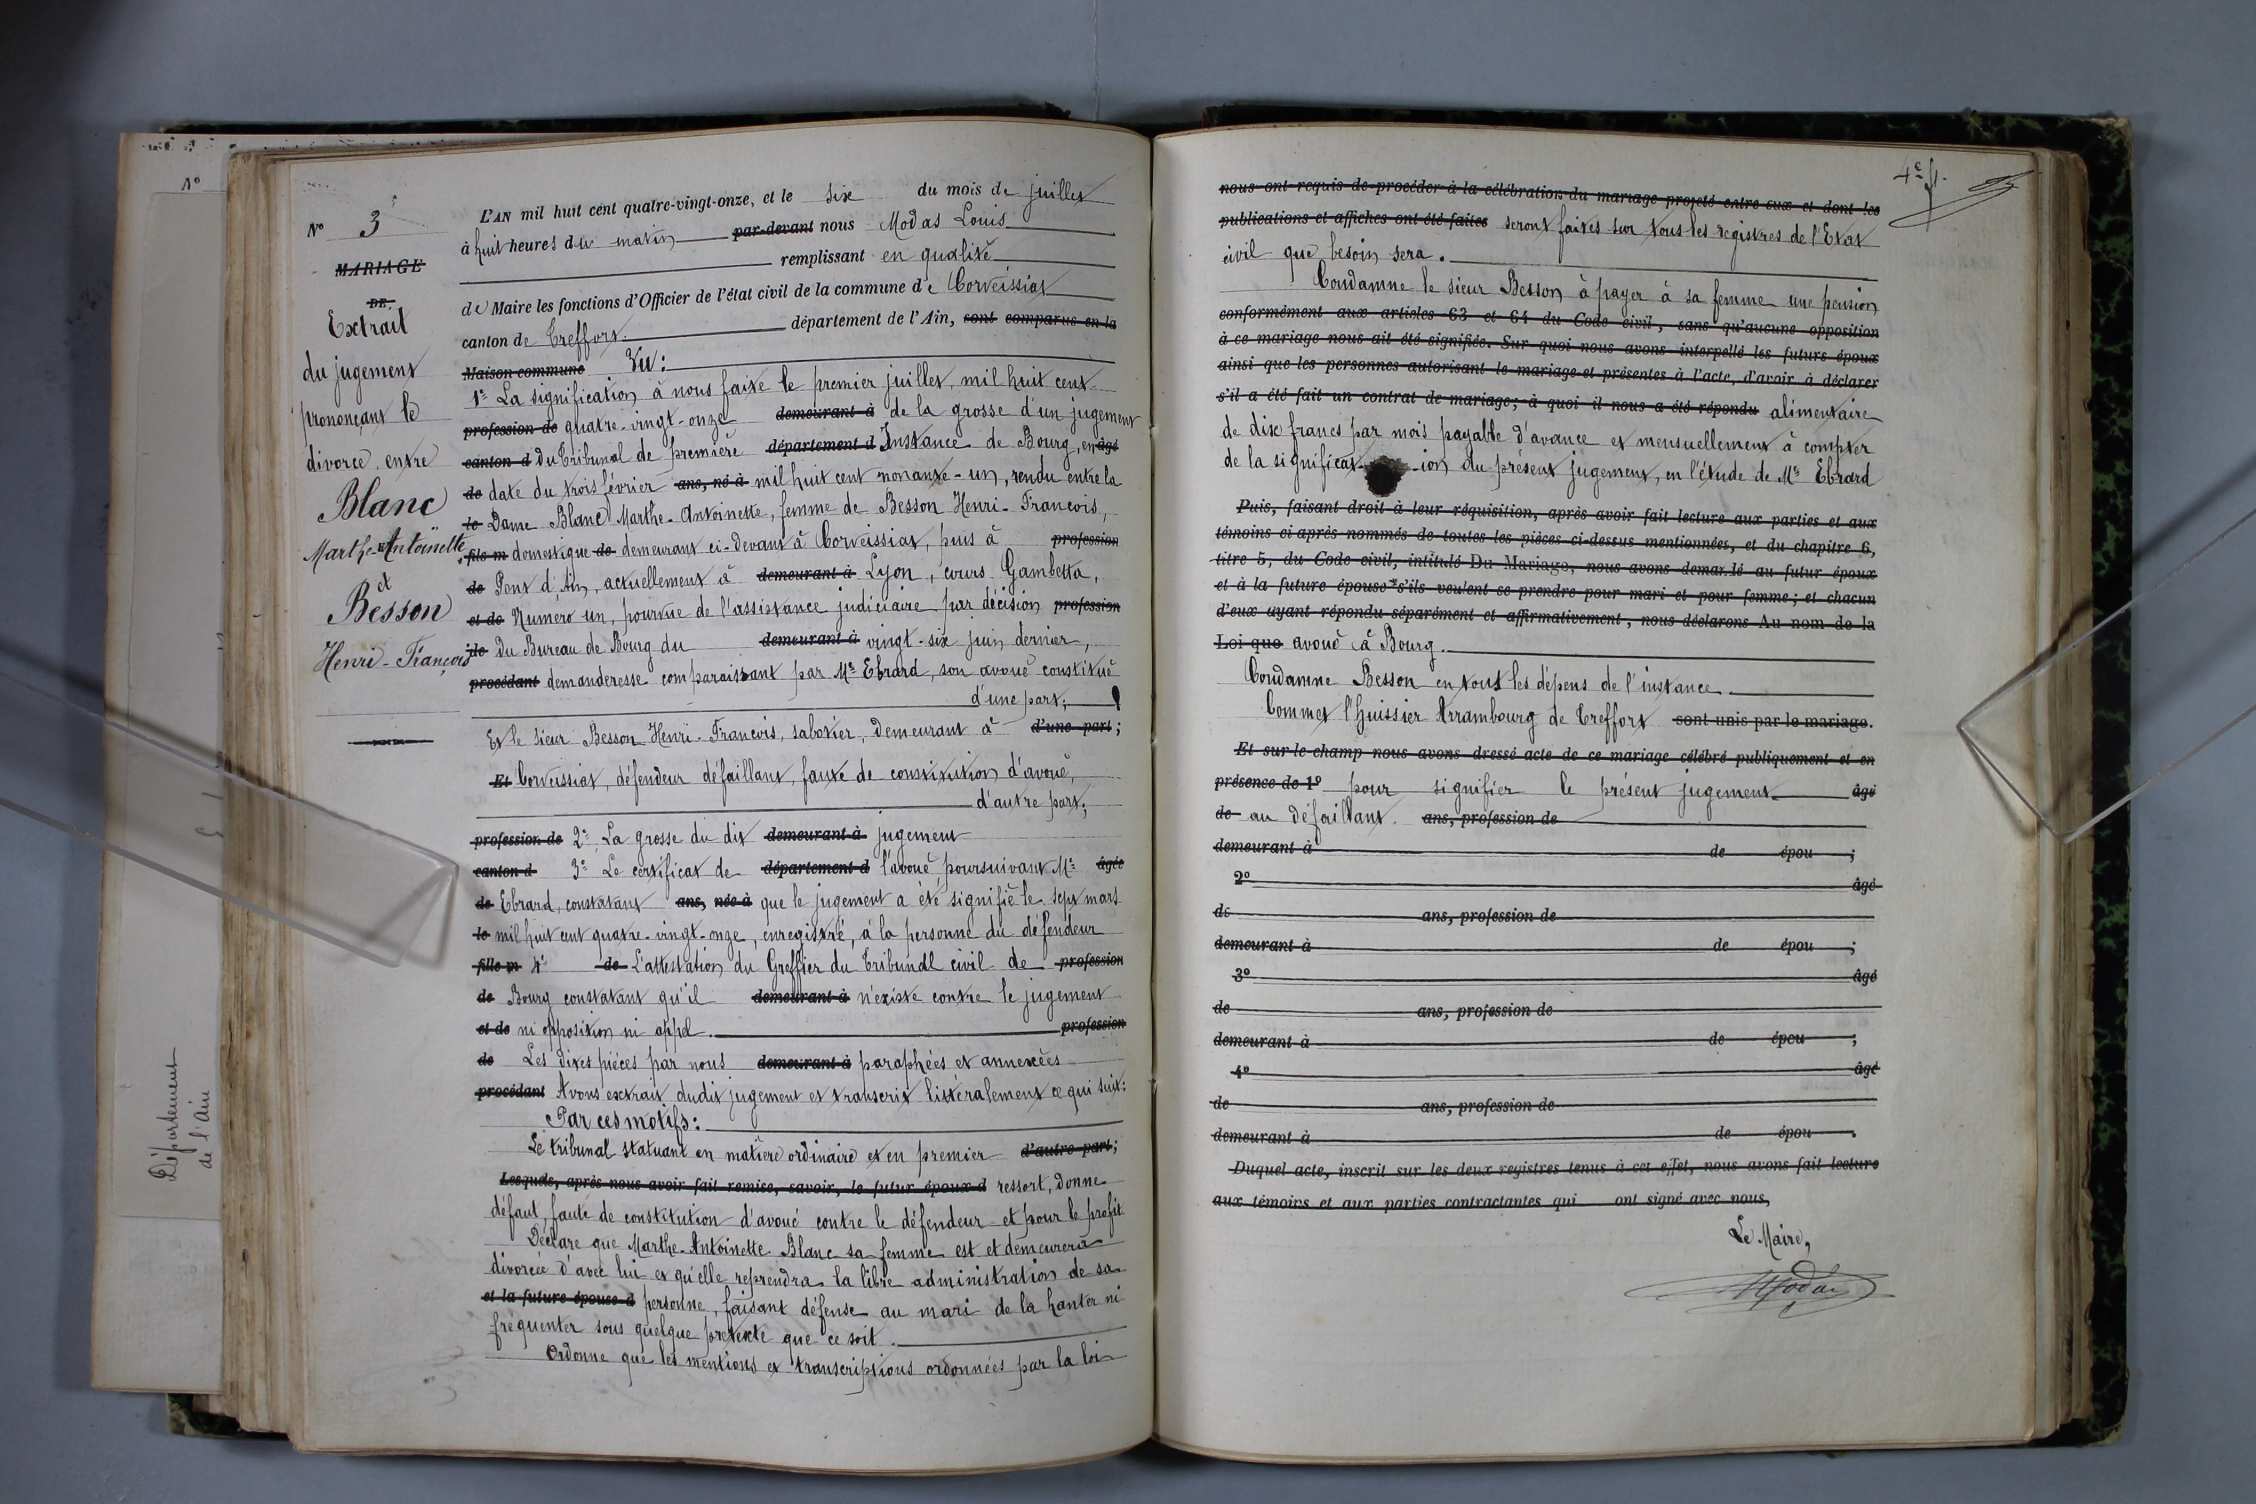 N°
Département
de l'Ain
N° 3
MARIAGE
DE
Extrait
du jugement
prononçant le
divorce entre
Blanc
Marthe-Antoinette
et
Besson
Henri-François
L'AN mil huit cent quatre-vingt-onze, et le six du mois de juillet
à huit heures du matin par-devant nous Modas Louis
remplissant en qualité
de Maire les fonctions d'Officier de l'état civil de la commune de Corveissiat
canton de Treffort département de l'Ain, sont comparus en la
Maison commune Vu:
1° La signification à nous faite le premier juillet, mil huit cent
profession de quatre-vingt-onze demeurant à de la grosse d'un jugement
canton d du Tribunal de première département d Instance de Bourg, en âgé
de date du trois février ans, né à mil huit cent nonante-un, rendu entre la
le Dame Blanc Marthe-Antoinette, femme de Besson Henri-François,
fils m domestique de demeurant ci-devant à Corveissiat, puis à profession
de Pont d'Ain, actuellement à demeurant à Lyon, cours Gambetta,
et de Numero un, pourvue de l'assistance judiciaire par décision profession
de du Bureau de Bourg du demeurant à vingt-six juin dernier,
procédant demanderesse comparaissant par Me Ebrard, son avoué constitué
d'une part;
Et le sieur Besson Henri-François, sabotier, demeurant à d'une part;
Et Corveissiat, défendeur défaillant, faute de constitution d'avoué,
d'autre part;
profession de 2° La grosse du dit demeurant à jugement
canton d 3° Le certificat de département d l'avoué poursuivant Me âgée
de Ebrard, constatant ans, née à que le jugement a été signifié le sept mars
le mil huit cent quatre-vingt-onze, enregistré, à la personne du défendeur
fille m 4° de L'attestation du Greffier du Tribunal civil de profession
de Bourg constatant qu'il demeurant à n'existe contre le jugement
et de ni opposition ni appel. profession
de Les dites pièces par nous demeurant à paraphées et annexées
procédant Avons extrait dudit jugement et transcrit littéralement ce qui suit:
Par ces motifs:
Le tribunal statuant en matière ordinaire et en premier d'autre part;
Lesquels, après nous avoir fait remise, savoir, le futur époux d ressort, donne
défaut, faute de constitution d'avoué contre le défendeur et pour le profit
Déclare que Marthe-Antoinette Blanc sa femme est et demeurera
divorcée d'avec lui et qu'elle reprendra la libre administration de sa
et la future épouse d personne, faisant défense au mari de la hanter ni
fréquenter sous quelque prétexte que ce soit.
Ordonne que les mentions et transcriptions ordonnées par la loi
4e f.
nous ont requis de procéder à la célébration du mariage projeté entre eux et dont les
publications et affiches ont été faites seront faites sur tous les registres de l'Etat
civil que besoin sera.
Condamne le sieur Besson à payer à sa femme une pension
conformément aux articles 63 et 64 du Code civil, sans qu'aucune opposition
à ce mariage nous ait été signifiée. Sur quoi nous avons interpellé les futurs époux
ainsi que les personnes autorisant le mariage et présentes à l'acte, d'avoir à déclarer
s'il a été fait un contrat de mariage; à quoi il nous a été répondu alimentaire
de dix francs par mois payable d'avance et mensuellement à compter
de la significat-ion du présent jugement, en l'étude de Me Ebrard
Puis, faisant droit à leur réquisition, après avoir fait lecture aux parties et aux
témoins ci-après nommés de toutes les pièces ci-dessus mentionnées, et du chapitre 6,
titre 5, du Code civil, intitulé Du Mariage, nous avons demandé au futur époux
et à la future épouse s'ils veulent se prendre pour mari et pour femme; et chacun
d'eux ayant répondu séparément et affirmativement, nous déclarons Au nom de la
Loi que avoué à Bourg.
Condamne Besson en tous les dépens de l'instance
Commet l'huissier Arrambourg de Treffort sont unis par le mariage.
Et sur-le-champ nous avons dressé acte de ce mariage célébré publiquement et en
présence de 1° pour signifier le présent jugement âgé
de au défaillant. ans, profession de
demeurant à de épou ;
2° âgé
de ans, profession de
demeurant à de épou ;
3° âgé
de ans, profession de
demeurant à de épou ;
4° âgé
de ans, profession de
demeurant à de épou .
Duquel acte, inscrit sur les deux registres tenus à cet effet, nous avons fait lecture
aux témoins et aux parties contractantes qui ont signé avec nous,
Le Maire,
Modas